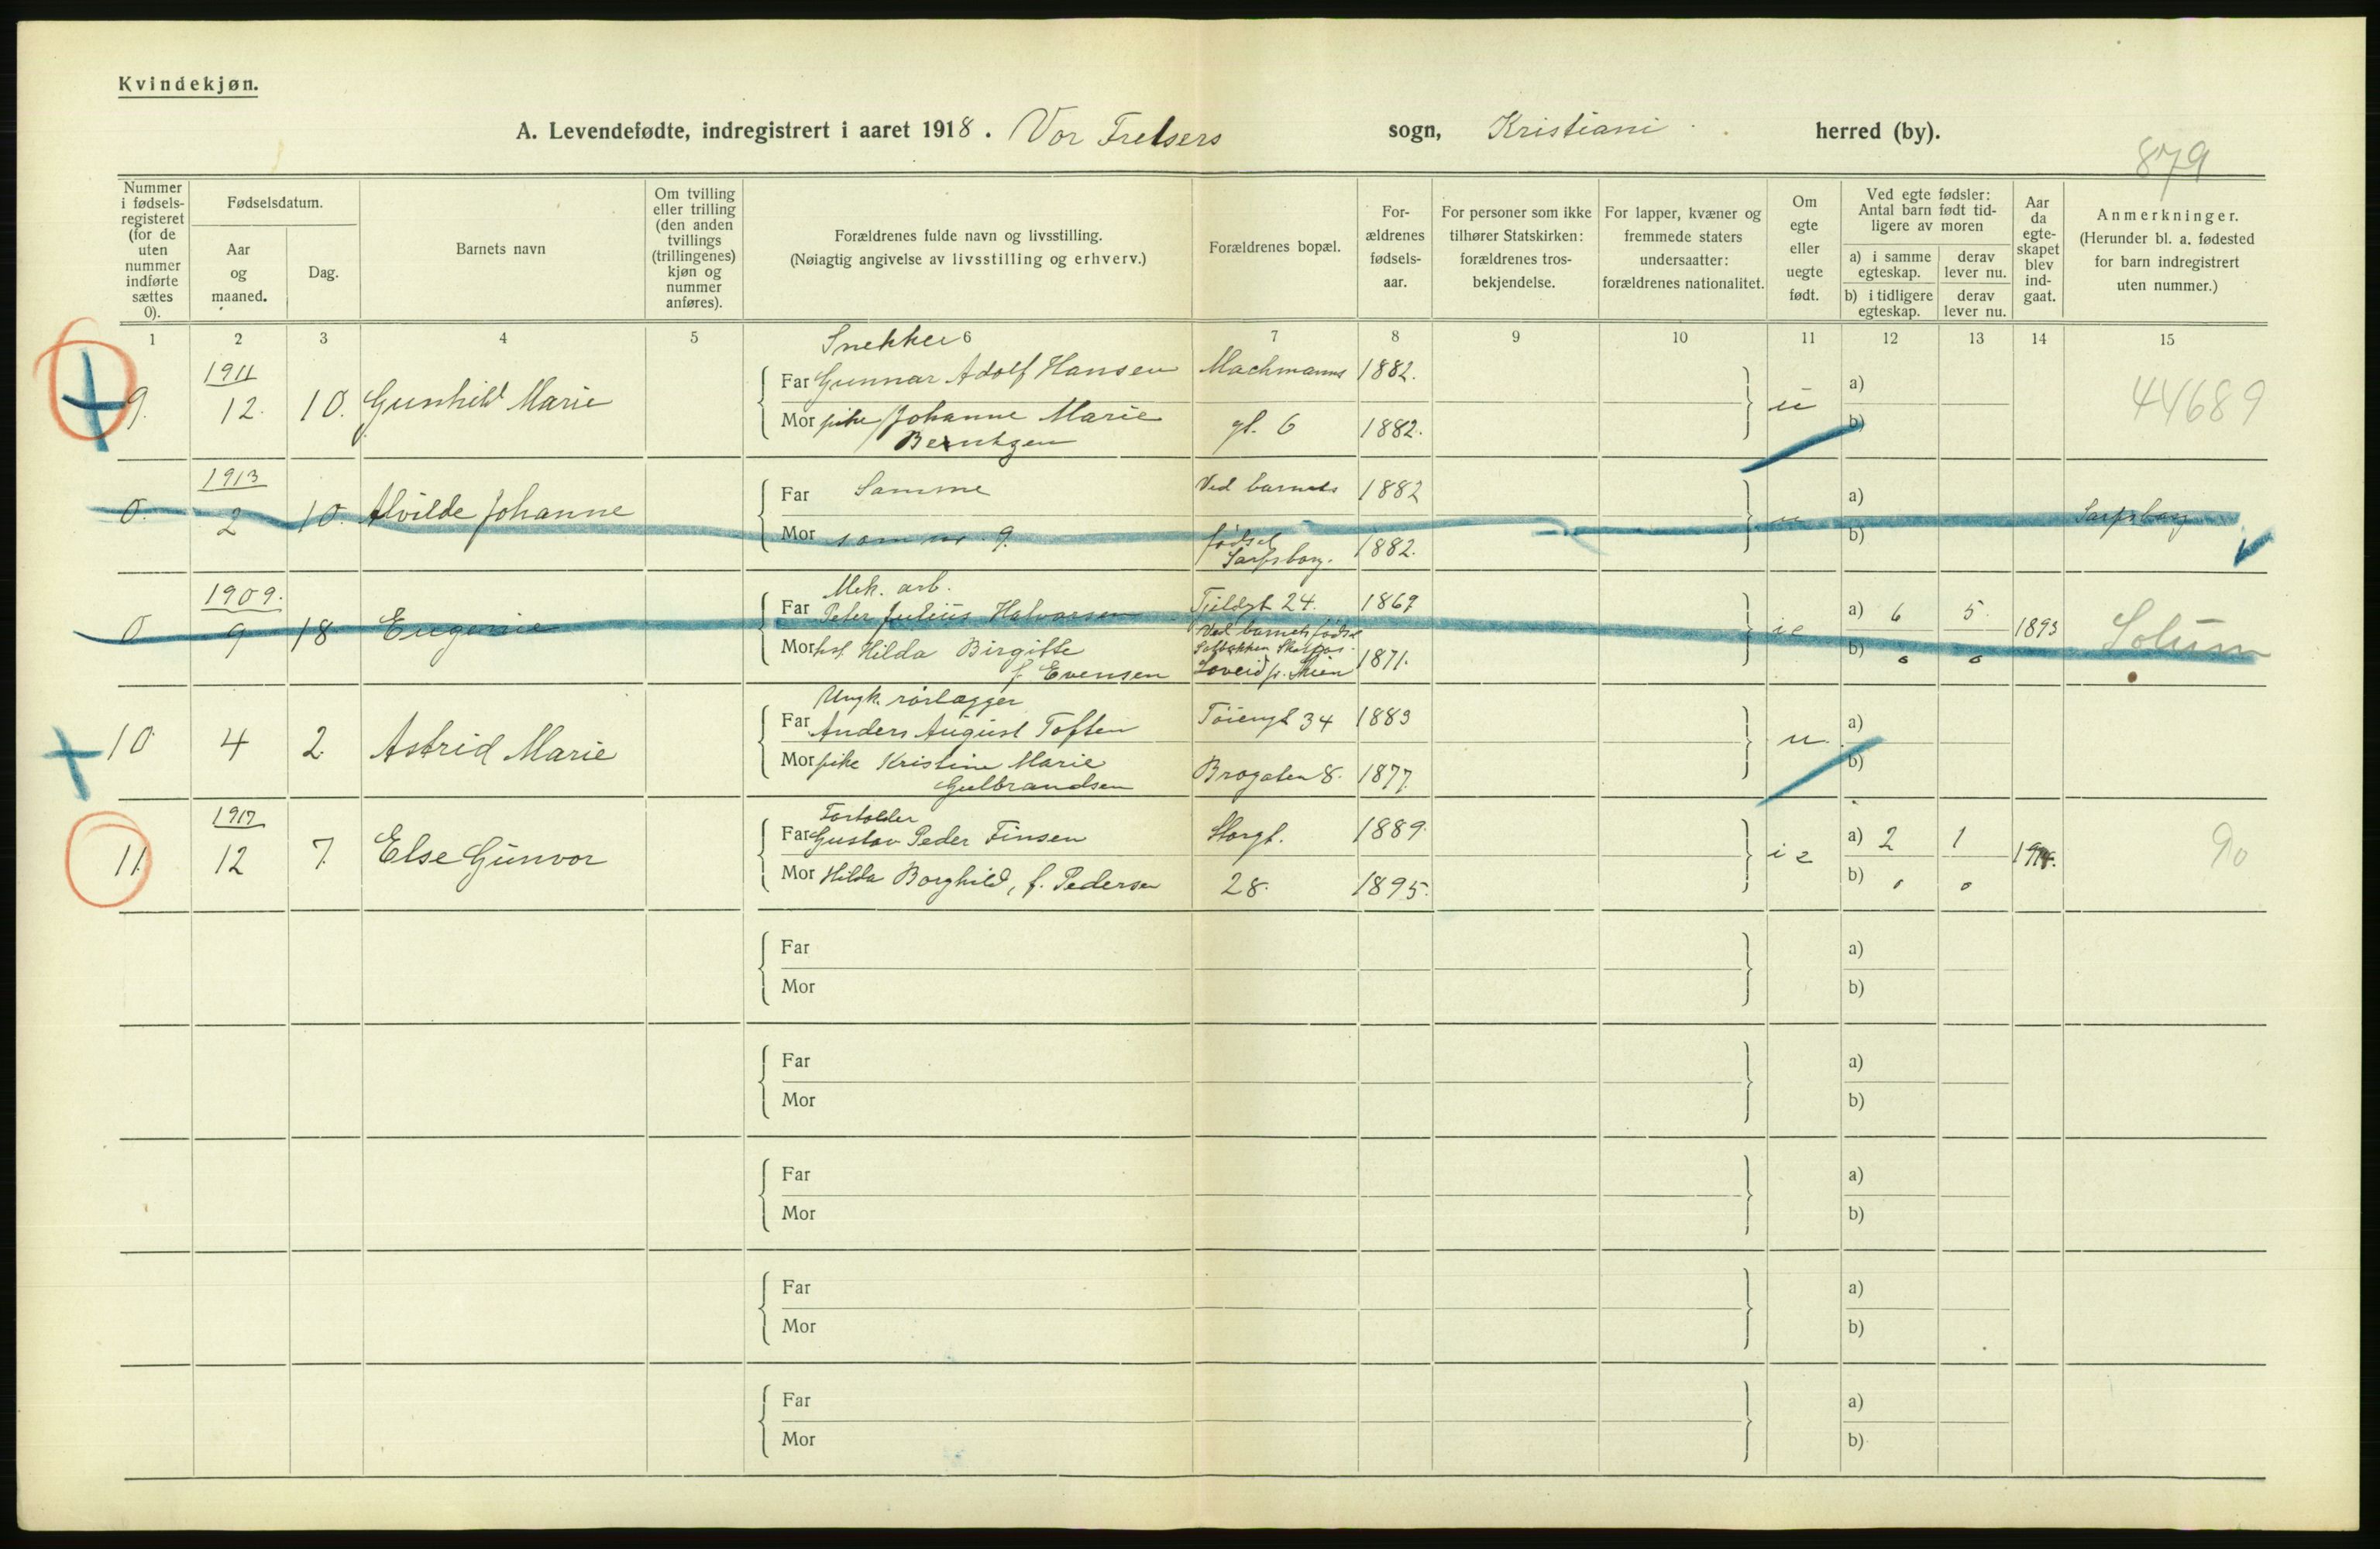 Kvindekjøn.
A. Levendefødte, indregistrert i aaret 1918. Vor Frelsers sogn, Kristiani herred (by).
879
Nummer i fødsels-registeret (for de uten nummer indførte sættes 0).
Fødselsdatum.
Aar og maaned.
Dag.
Barnets navn
Om tvilling eller trilling (den anden tvillings (trillingenes) kjøn og nummer anføres).
Forældrenes fulde navn og livsstilling.
(Nøiagtig angivelse av livsstilling og erhverv.)
Forældrenes bopæl.
For-ældrenes fødsels-aar.
For personer som ikke tilhører Statskirken: forældrenes tros-bekjendelse.
For lapper, kvæner og fremmede staters undersaatter: forældrenes nationalitet.
Om egte eller uegte født.
Ved egte fødsler: Antal barn født tid-ligere av moren
a) i samme egteskap.
derav lever nu.
b) i tidligere egteskap.
derav lever nu.
Aar da egte-skapet blev ind-gaat.
Anmerkninger.
(Herunder bl. a. fødested for barn indregistrert uten nummer.)
1 2 3 4 5 6 7 8 9 10 11 12 13 14 15
Snekker
1911
9. 12. 10. Gunhild Marie
Far Gunnar Adolf Hansen 1882.
Mor pike Johanne Marie gt. 6 1882.
Berntzen
u a)
b)
44689
1913
0. 2 10. Alvilde Johanne
Far Samme Ved barnets 1882
Mor som nr. 9. fødsel Sarpsborg. 1882.
u a)
b)
Sarpsborg
1909.
0 9 18 Eugenie
Mek. arb.
Far Peter Julius Halvorsen 24. 1869
Ved barnets fødsel
Mor Hilda Birgitte 1871.
f. Evensen Skien
ie a) 6 5 1893
b) 0 0
Solum
Ungk. rørlægger
10 4 2 Astrid Marie
Far Anders August Toften Tøiengt 34 1889
Mor pike Kristine Marie Brogaten 8. 1877
Gulbrandsen
u. a)
b)
1917
11. 12 7. Else Gunvor
Far Gustav Peder Finsen Storgt. 1889.
Mor Hilda Borghild, f. Pedersen 28. 1895.
ie a) 2 1
b) 0 0
90
Far
Mor
a)
b)
Far
Mor
a)
b)
Far
Mor
a)
b)
Far
Mor
a)
b)
Far
Mor
a)
b)